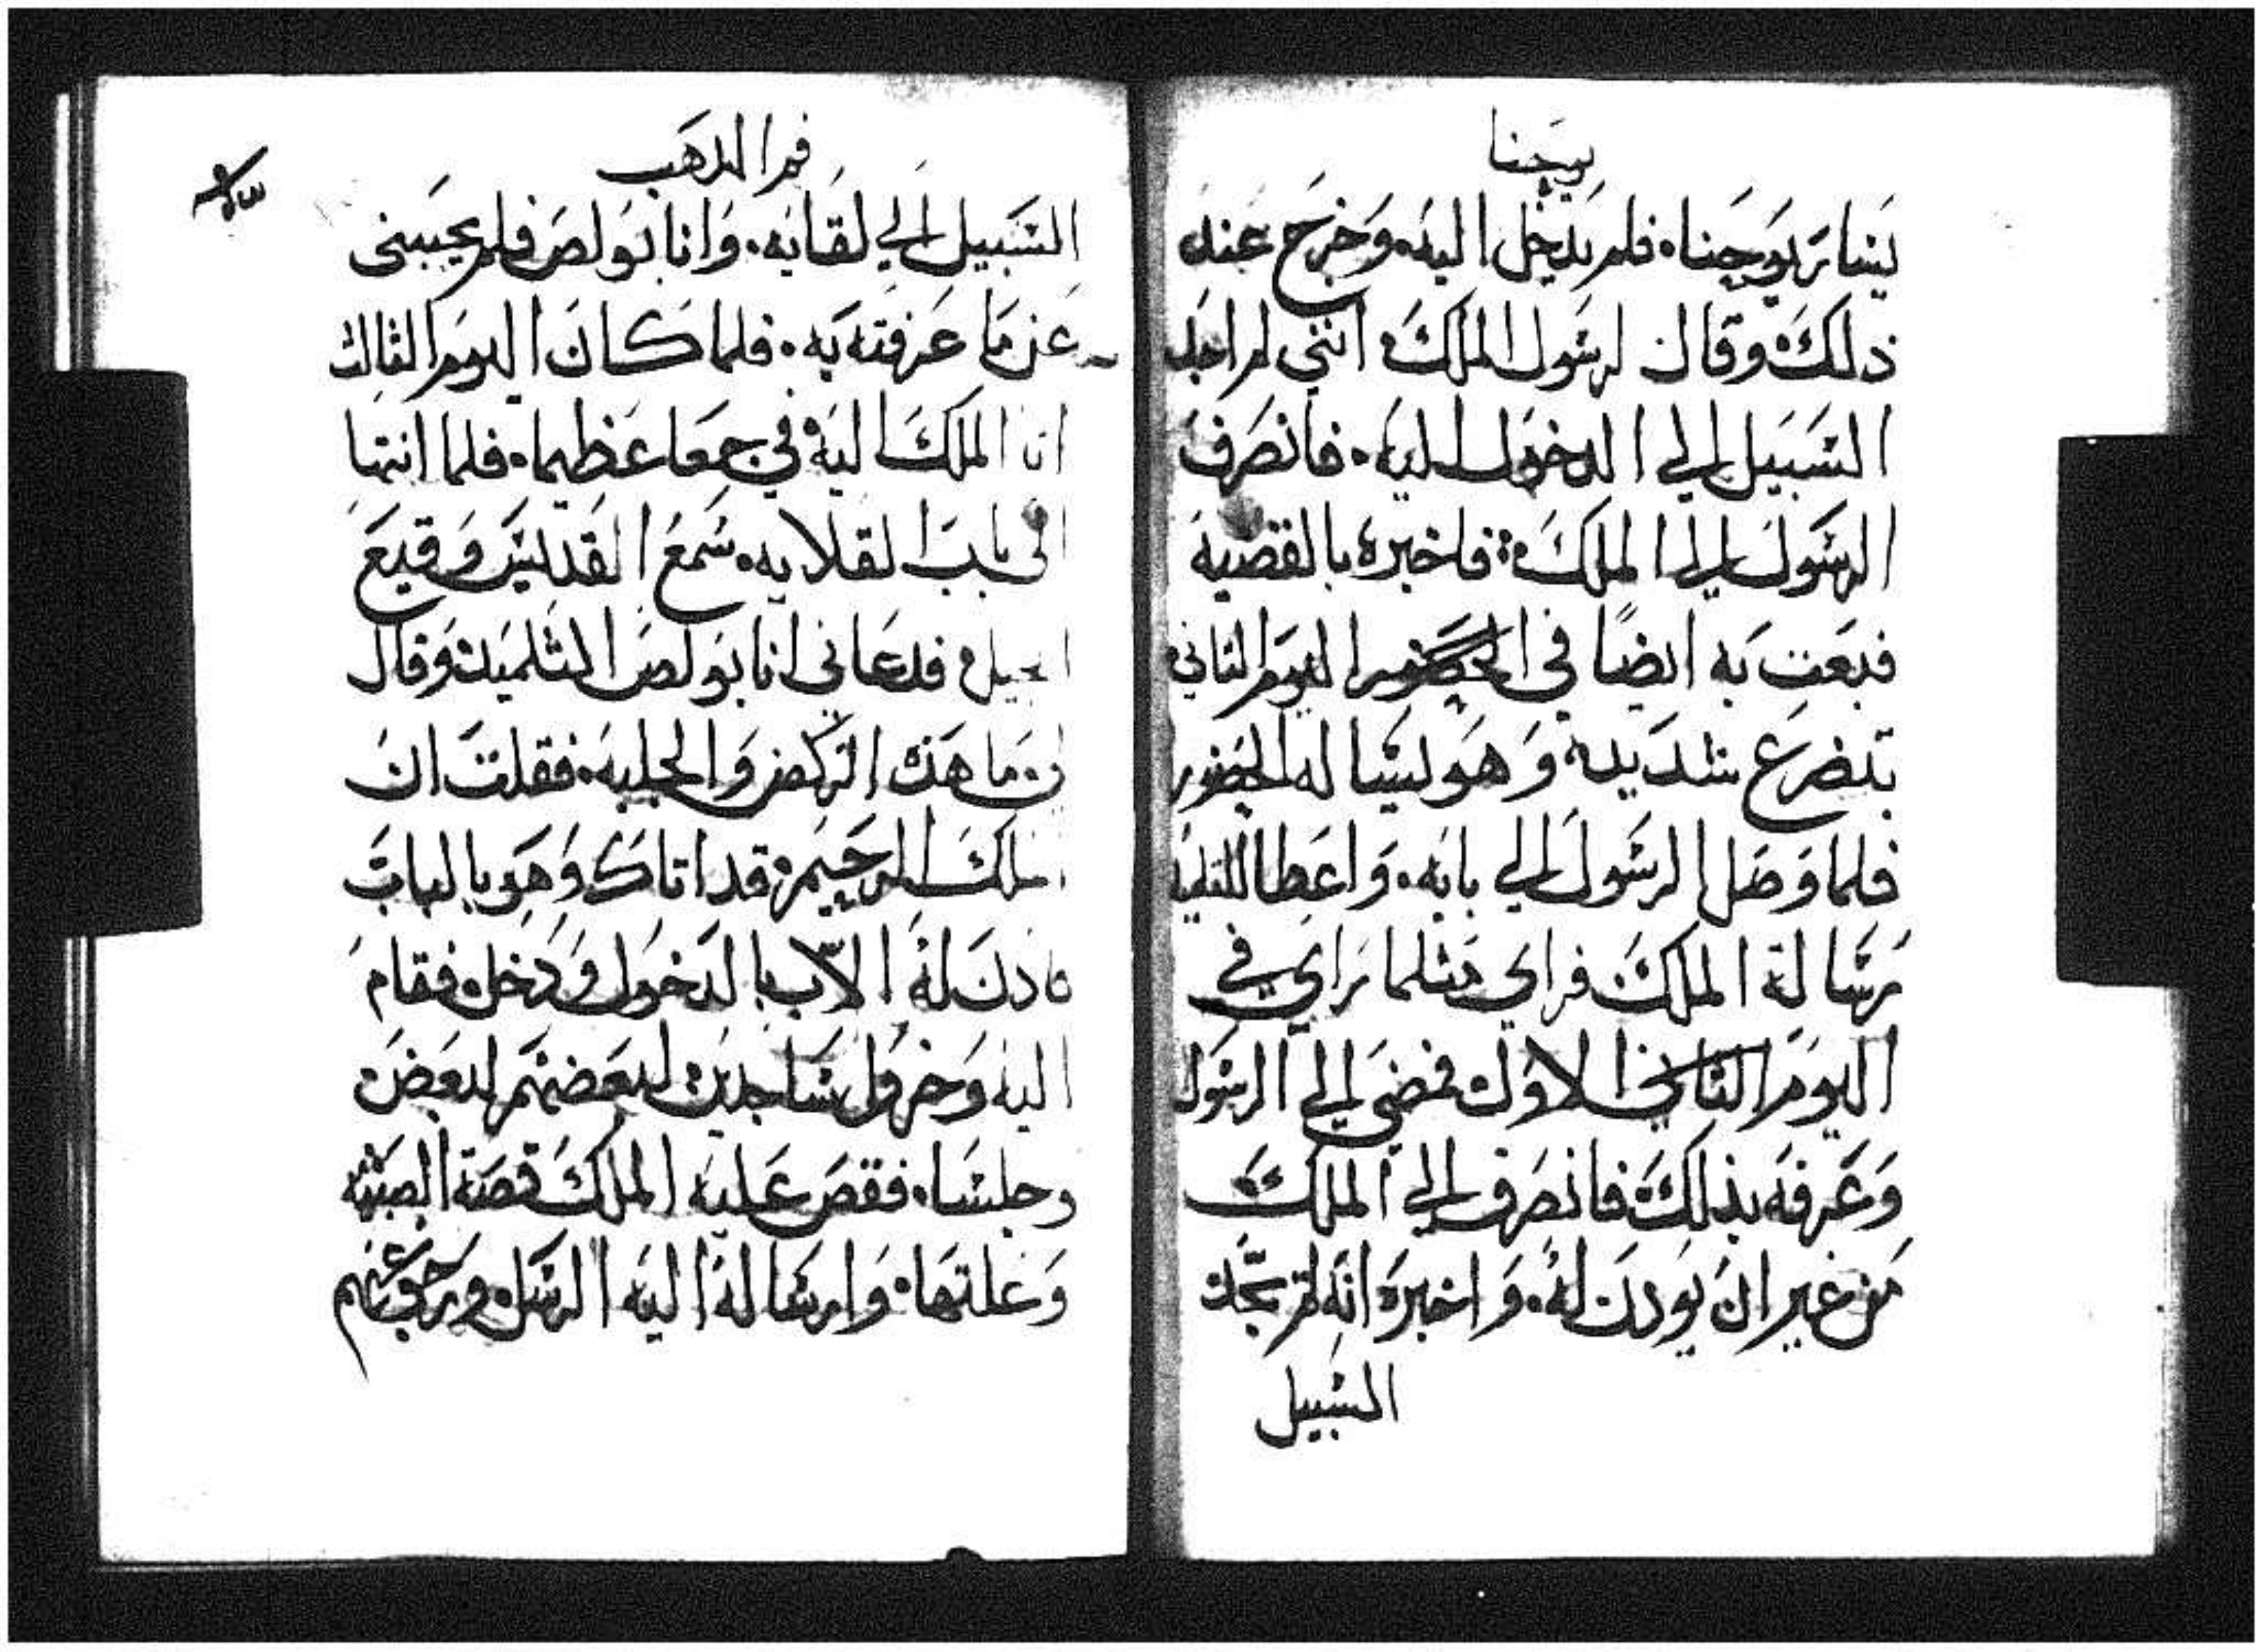 يوحنا
يسارر يوحناه فلم يدخل اليه. وخرج عند
ذلك وقال لرسول الملك انني لم اجد
السبيل الي الدخول اليه. فانصرف
الرسول الي الملك: فاخبره بالقضية
فبعت به ايضًا في الحضور اليوم التاني
بتضرع شديد وهو يساله الحضور
فلما وصل الرسول الي بابه. واعطا التلميد
رسالة الملك فراي مثلما راي في
اليوم التاني الاول فمضي الي الرسول
وعرفه بذلك فانصرف الي الملك
من غير ان يودن له. واخبره انه لم يجد
السبيل
فم الدهب
السبيل الي لقايه. وانا بولص فلم يجيبني
عن ما عرفته به. فلما كان اليوم الثالث
اتا الملك اليه في جمعا عظيما. فلما انتها
الى باب القلايه. سمع القديس وقيع
الخيل فدعاني انا بولص التلميد وقال
لي ما هذه الركض والجلبه. فقلت ان
الملك الرحيم قد اتاك وهو بالباب
فاذن له الاب بالدخول ودخل. فقام
اليه وخرو ساجدين لبعضهم لبعض
وجلسا. فقص عليه الملك قصة الصبيه
وعلتها. وارساله اليه الرسل ورجوعهم